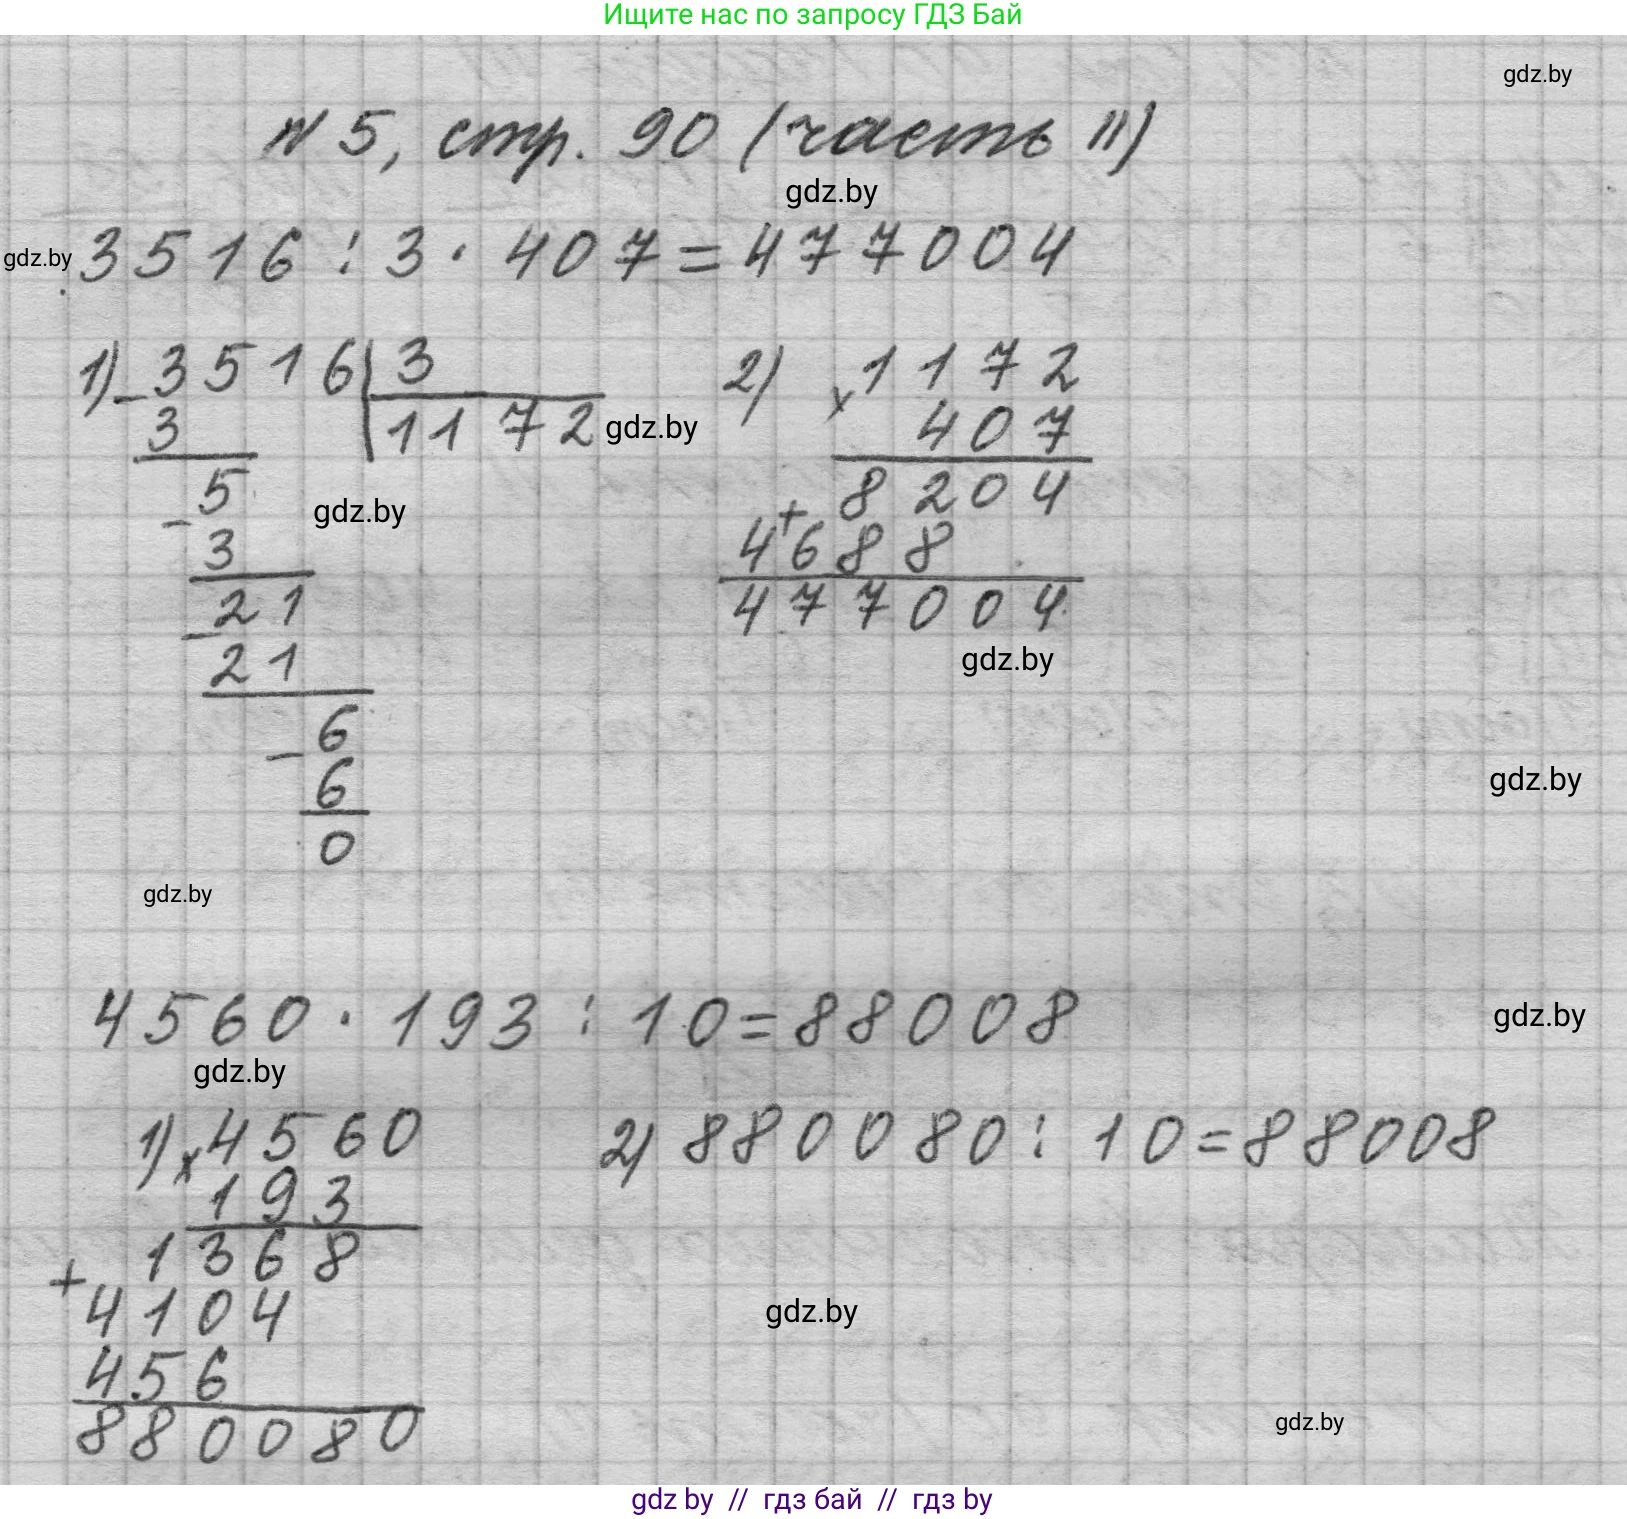 Ищите нас по запросу ГДЗ Бай
gdz.by
№ 5, стр. 90 (часть II)
gdz.by
gdz.by
3516 : 3 · 407 = 477004
1) - 3516 | 3
3
1172
gdz.by
- 5
3
gdz.by
- 21
21
- 6
6
0
2) × 1172
407
+ 8204
4688
477004
gdz.by
gdz.by
gdz.by
4560 · 193 : 10 = 88008
gdz.by
gdz.by
1) × 4560
193
+ 1368
4104
456
880080
2) 880080 : 10 = 88008
gdz.by
gdz.by
gdz by // гдз бай // гдз by